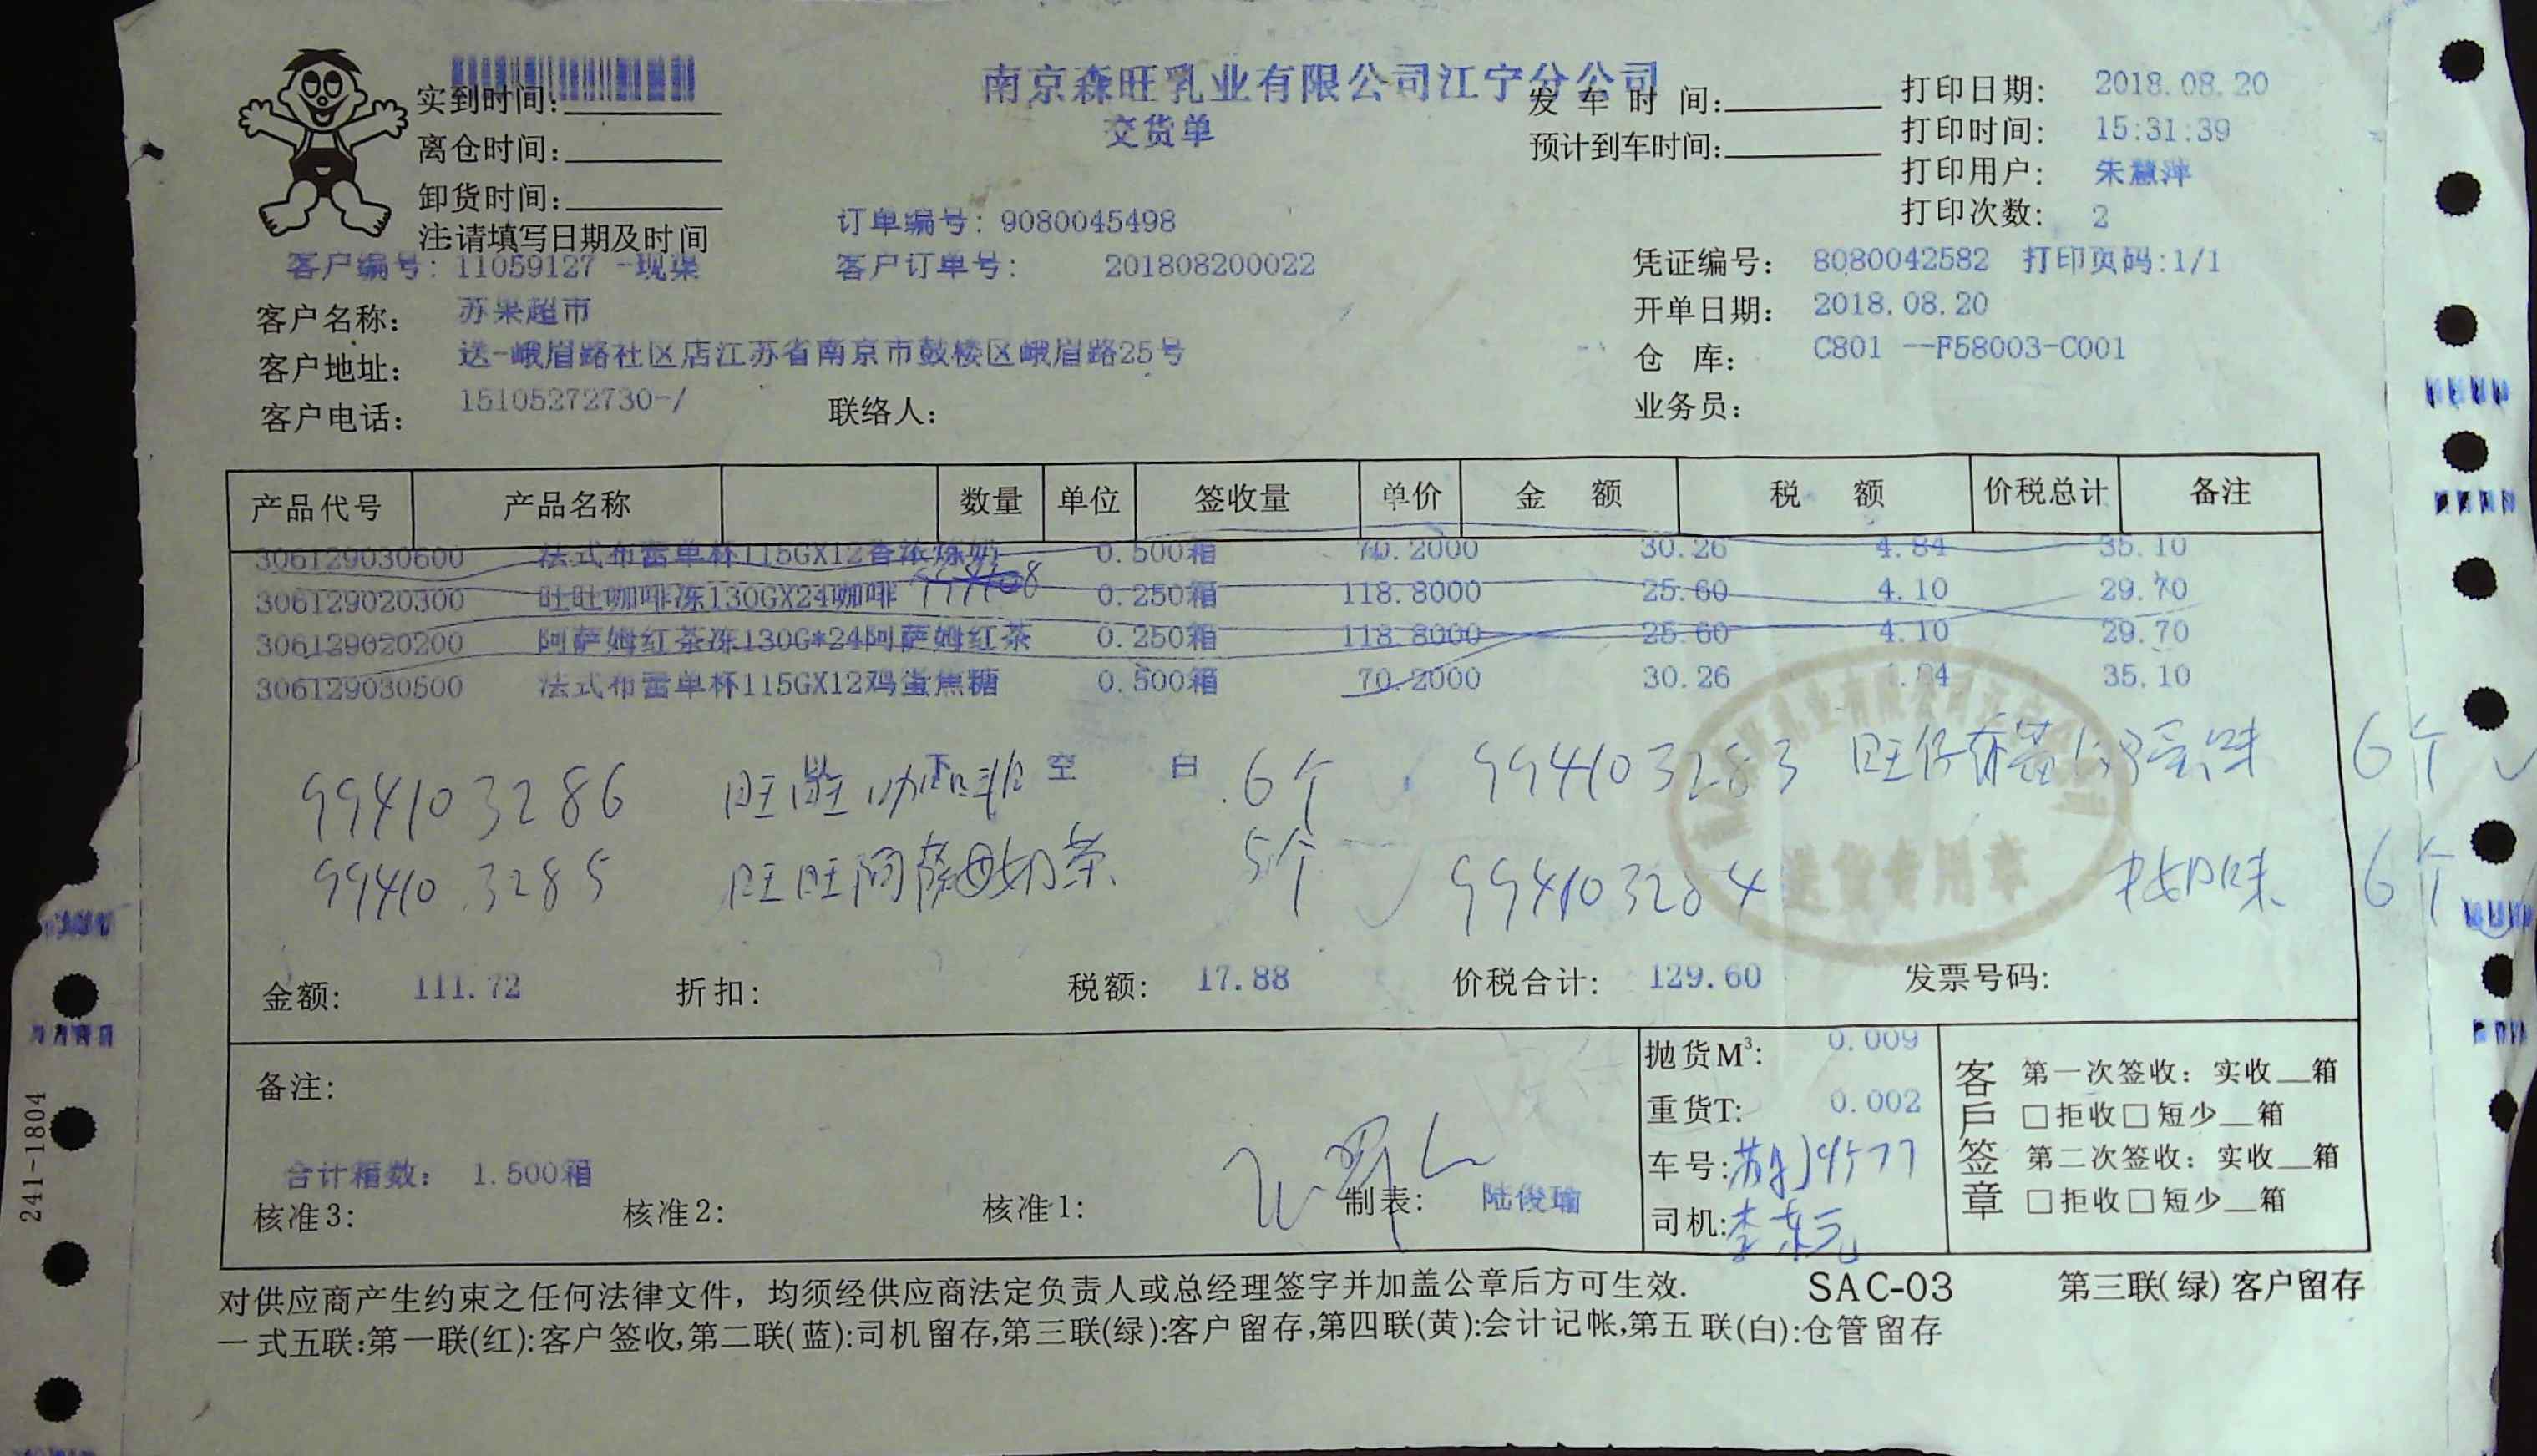 南京森旺乳业有限公司江宁分公司
交货单
实到时间:
离仓时间:
卸货时间:
注:请填写日期及时间
发车时间:
预计到车时间:
打印日期: 2018.08.20
打印时间: 15:31:39
打印用户: 朱慧萍
打印次数: 2
订单编号: 9080045498
客户编号: 11059127 -现渠 客户订单号: 201808200022
凭证编号: 8080042582 打印页码:1/1
客户名称: 苏果超市
开单日期: 2018.08.20
客户地址: 送-峨眉路社区店江苏省南京市鼓楼区峨眉路25号
仓 库: C801 --F58003-C001
客户电话: 15105272730-/ 联络人:
业务员:
产品代号 产品名称 数量 单位 签收量 单价 金额 税额 价税总计 备注
306129030600 法式布蕾单杯115GX12香浓炼奶 0.500箱 70.2000 30.26 4.84 35.10
306129020300 旺旺咖啡冻130GX24咖啡 0.250箱 118.8000 25.60 4.10 29.70
306129020200 阿萨姆红茶冻130G*24阿萨姆红茶 0.250箱 118.8000 25.60 4.10 29.70
306129030500 法式布蕾单杯115GX12鸡蛋焦糖 0.500箱 70.2000 30.26 .84 35.10
以下空白
994103286 旺旺咖啡 6个 994103283 旺仔布蕾 味 6个
994103285 旺旺阿萨姆奶茶 5个 994103284 味 6个
金额: 111.72 折扣: 税额: 17.88 价税合计: 129.60 发票号码:
送货专用章
备注:
合计箱数: 1.500箱
核准3: 核准2: 核准1: 制表: 陆俊瑜
抛货M³: 0.009
重货T: 0.002
车号: 9577
司机: 李东元
客户签章
第一次签收: 实收__箱
□拒收□短少__箱
第二次签收: 实收__箱
□拒收□短少__箱
对供应商产生约束之任何法律文件，均须经供应商法定负责人或总经理签字并加盖公章后方可生效. SAC-03 第三联(绿)客户留存
一式五联:第一联(红):客户签收,第二联(蓝):司机留存,第三联(绿):客户留存,第四联(黄):会计记帐,第五联(白):仓管留存
241-1804